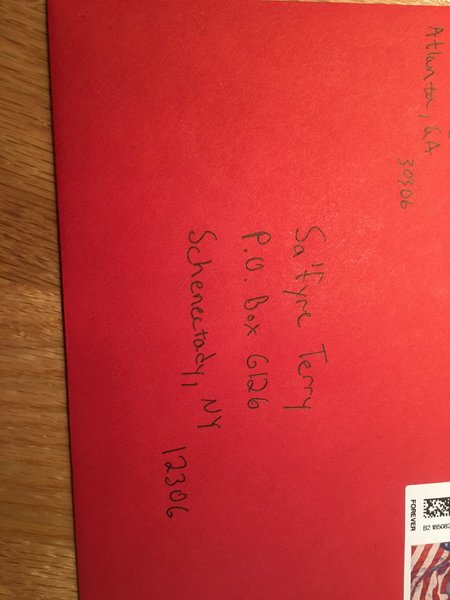 Atlanta, GA
30306
Sa'fyre Terry
P.O. Box 6126
Schenectady, NY
12306
FOREVER